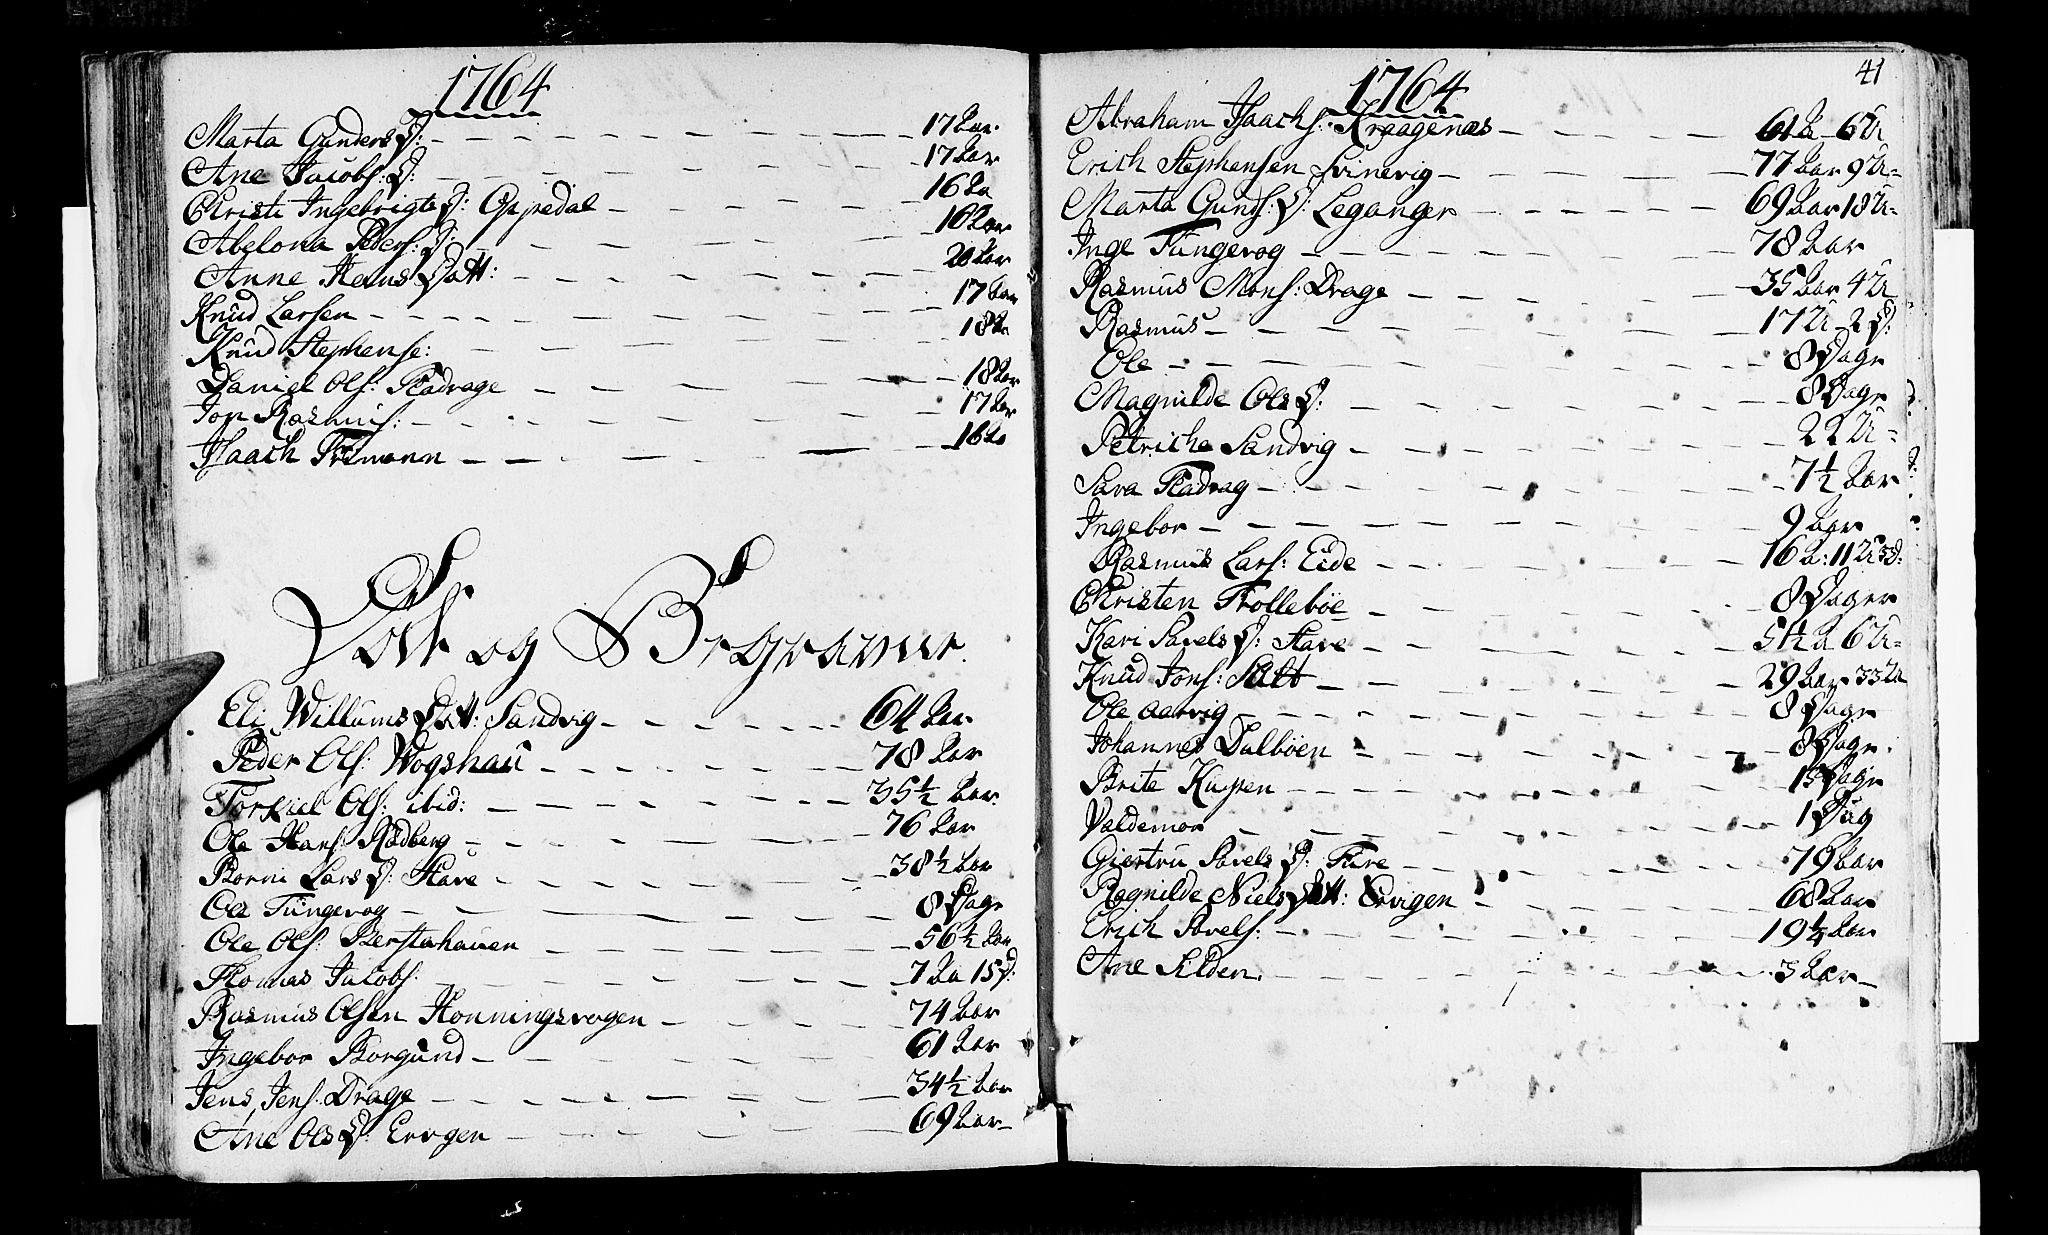 1764
Marta Gunders D: 17 Aar.
Ane Jacobs: D: 17 Aar
Christi Ingebrigts D: Oppedal 16 Aa
Abelona Peders: D: 16 Aar
Anne Hans Datt: 20 Aar
Knud Larsen 17 Aar
Knud Stephense: 18 Aa
Daniel Ols: Fladrage 18 Aar
Jon Rasmus: 17 Aar
Isaach Frimann 16 Aa
Døde og Begravne.
Eli Willums Datt: Sandvig 64 Aar
Peder Ols: Wogshau 78 Aar
Torkiel Ols: ibid: 35 1/2 Aar.
Ole Hans: Rødberg 76 Aar
Borni Lars D: Stave 38 1/2 Aar
Ole Tungevog 8 Dage
Ole Ols: Berstahauen 56 1/2 Aar
Thomas Jacobs: 7 Aa 15 D:
Rasmus Olsen Honningsvogen 74 Aar
Ingebor Borgund 61 Aar
Jens Jens: Drage 34 1/2 Aar
Ane Ols D: Ervigen 69 Aar
41
1764
Abraham Isaachs: Kraagenæs 61 A 6 U
Erich Stephensen Svinevig 77 Aar 9 U
Marta Gunds: D: Leganger 69 Aar 18 U
Inge Tungevog 78 Aar
Rasmus Mons: Drage 35 Aar 4 U
Rasmus 17 U 2 D:
Ole 8 Dage
Magnilde Ols D: 8 Dage
Petriche Sandvig 22 U
Sara Fladrag 7 1/2 Aar
Ingebor 9 Aar
Rasmus Lars: Eide 16 A: 11 U 3 D:
Christen Trollebøe 8 Dager
Kari Povels D: Stave 5 1/2 A 6 U
Knud Jons: Salt 29 Aar 33 U
Ole Aarvig 8 Dage
Johannes Dalbøen 8 Dage.
Brite Kupen 15 Dage
Valdemor 1 Dag
Giertru Povels D: Fure 79 Aar
Ragnilde Niels Datt: Ervigen 68 Aar
Erich Povels: 19 1/4 Aar
Ane Silden. 3 Aar